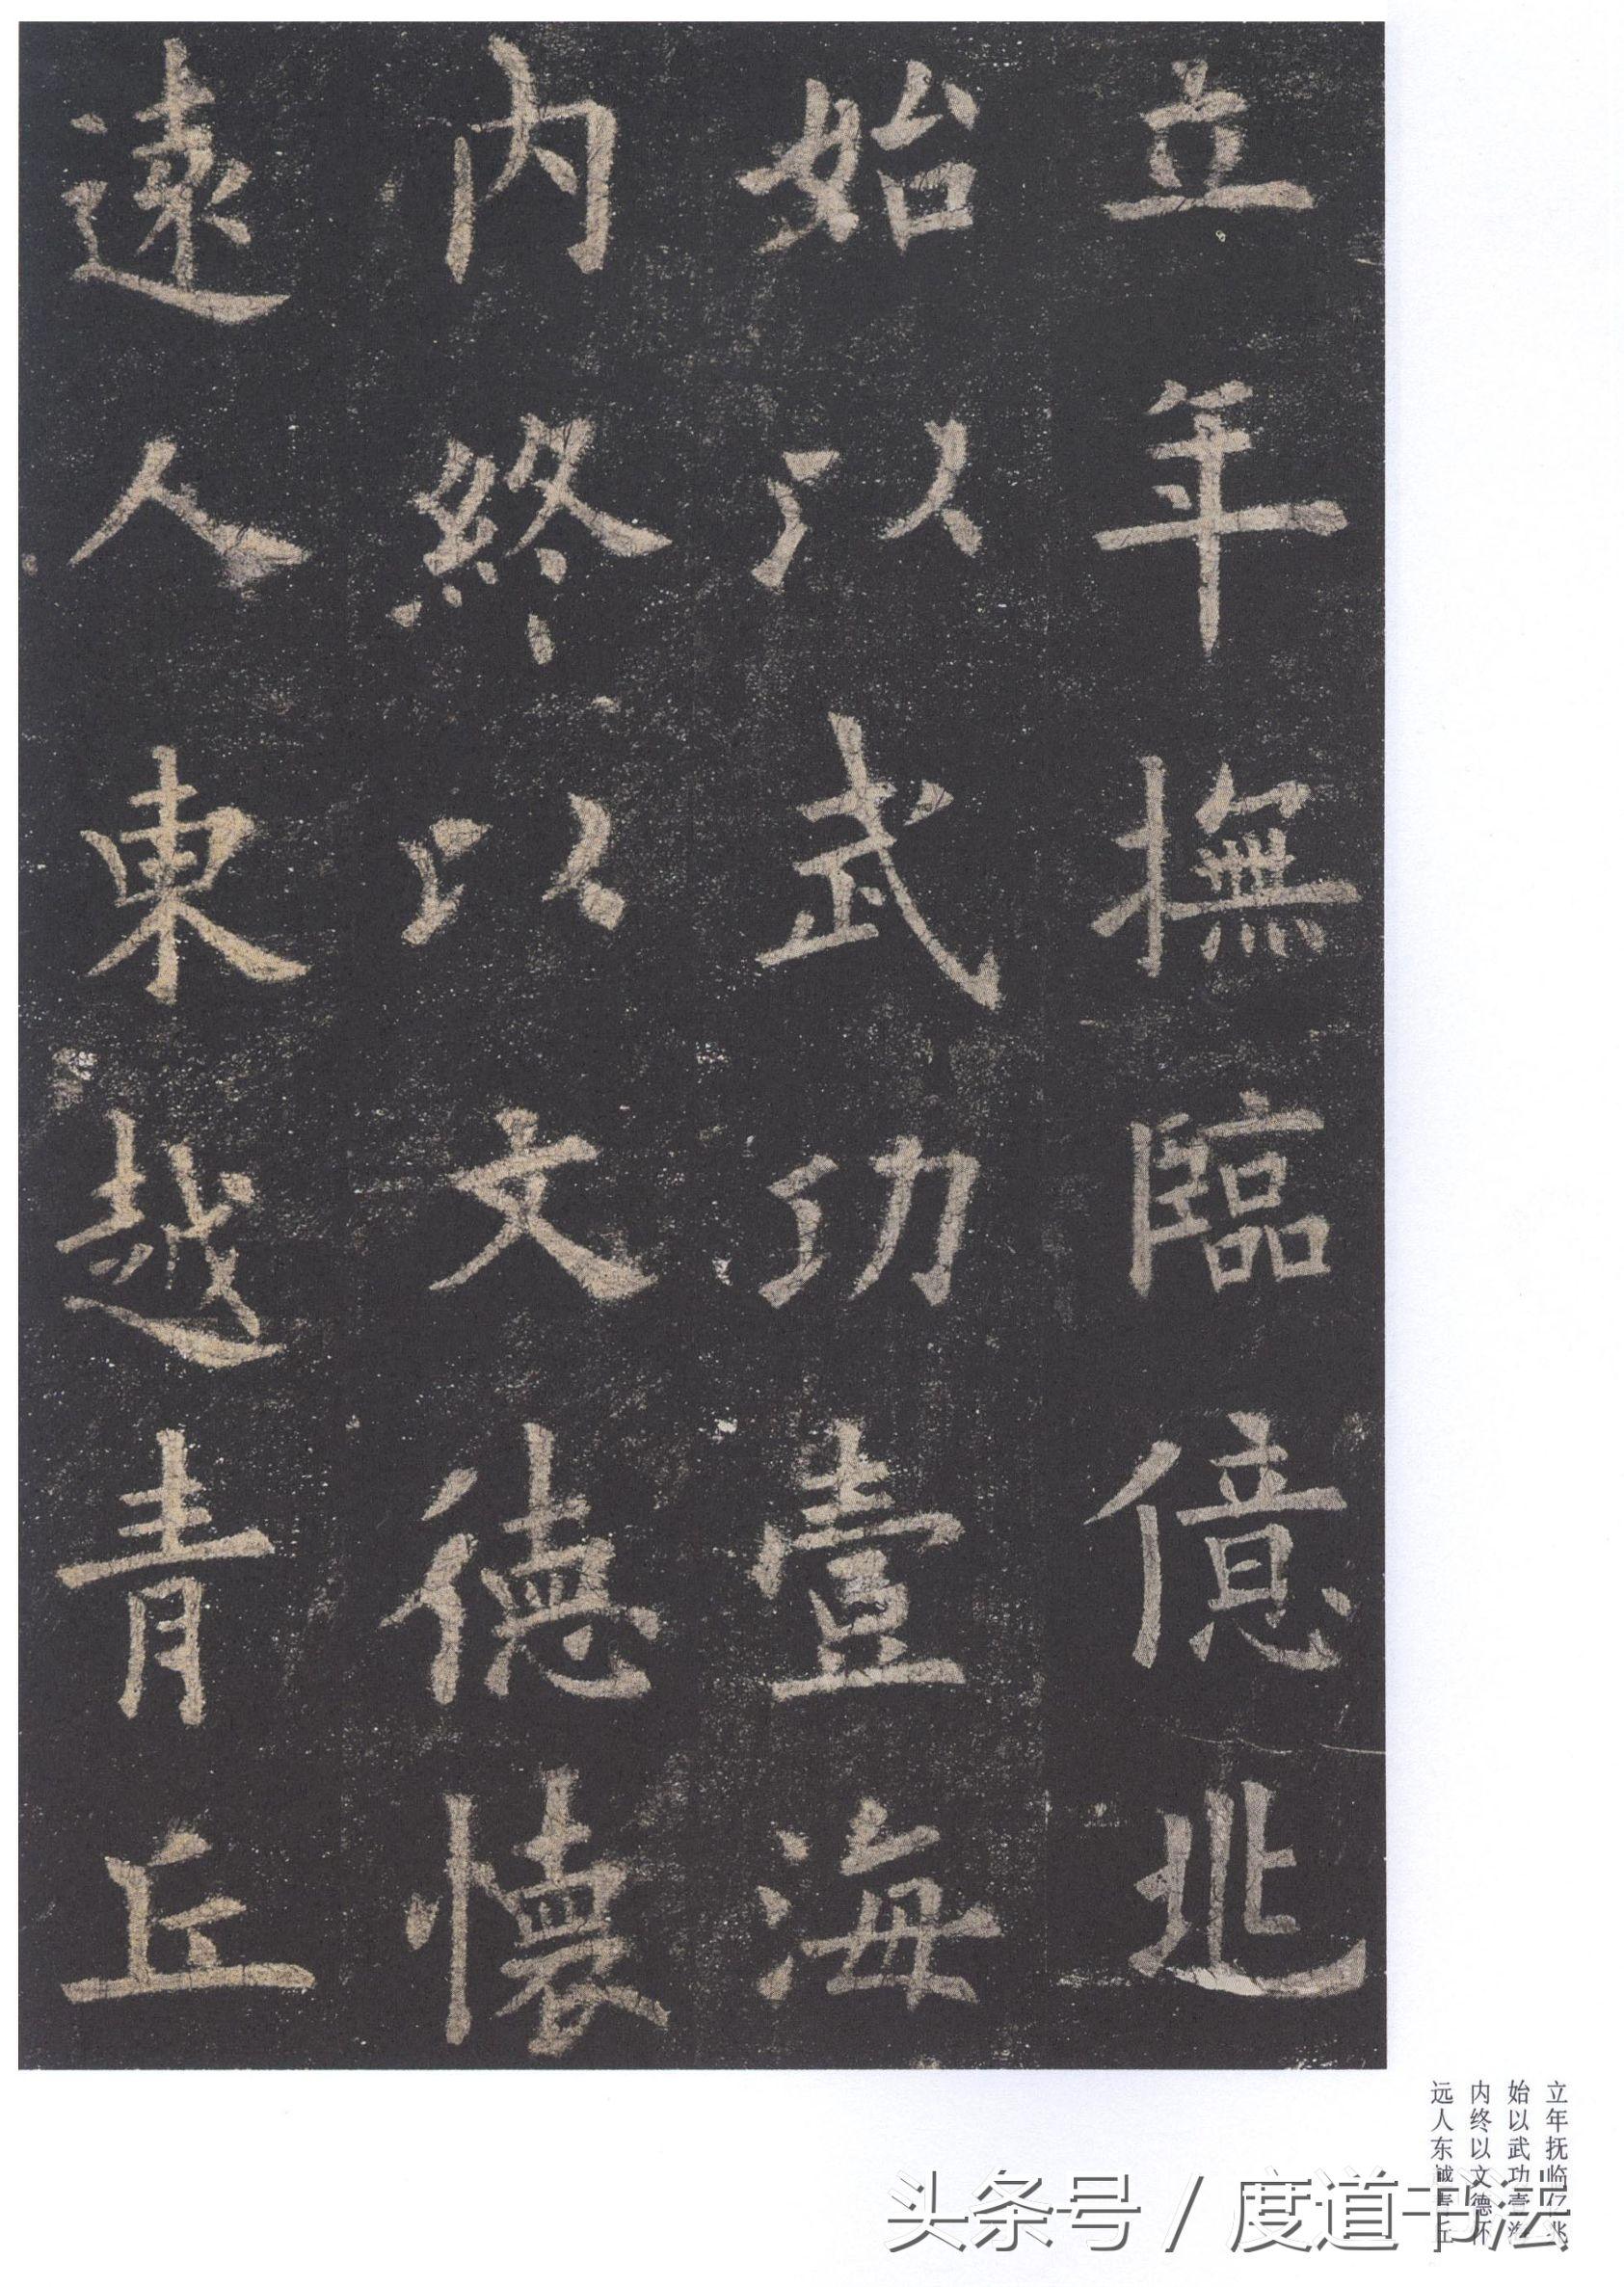 立年撫臨億兆
始以武功壹海
内終以文德懷
遠人東越青丘
立年抚临亿兆
始以武功壹海
内终以文德怀
远人东越青丘
头条号 / 度道书法